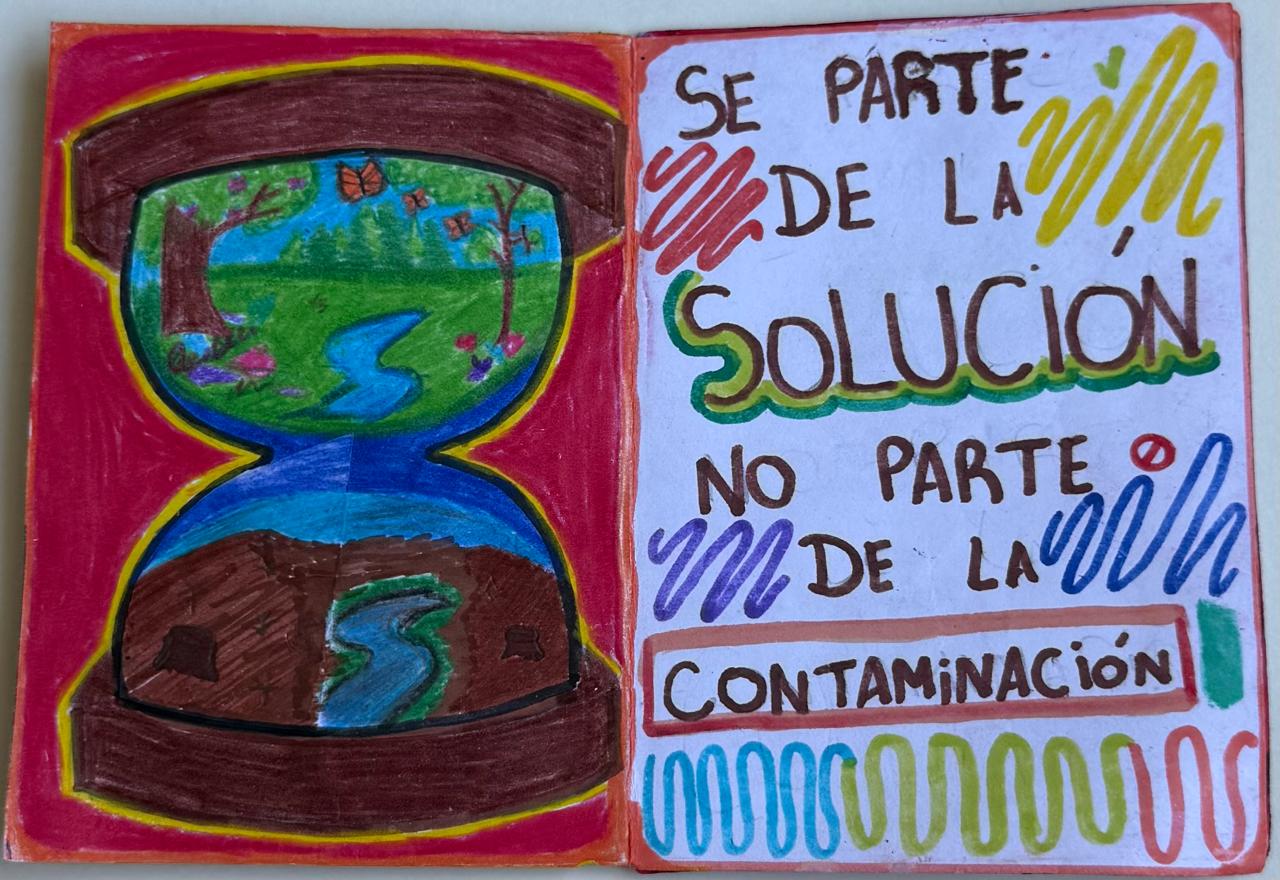 SE PARTE
DE LA
SOLUCIÓN
NO PARTE
DE LA
CONTAMINACIÓN